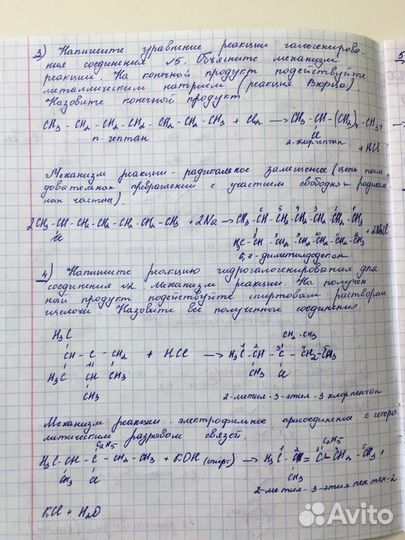 3) Напишите уравнение реакции галогенирова-
ние соединения №5. Объясните механизм
реакции. На конечной продукт подействуйте
металлическим натрием (реакция Вюрца)
Назовите конечной продукт.
CH3 - CH2 - CH2 - CH2 - CH2 - CH2 - CH3 + Cl2 → CH3 - CH - (CH2)4 - CH3 +
Cl
n-гептан
2-хлоргептан
+ HCl
Механизм реакции - радикальное замещение (цепь
превращений с участием свободно
частиц).
2CH3 - CH - CH2 - CH2 - CH2 - CH2 - CH3 + 2Na → CH3 - CH - CH2 - CH2 - CH2 - CH2 - CH3
Cl
H3C - CH - CH2 - CH2 - CH2 - CH2 - CH3
+ 2NaCl
6,7-диметилдодекан
4) Напишите реакцию гидрогалогенирования для
соединения №2. Механизм реакции. На получен
ный продукт подействуйте спиртовым раствором
щелочи. Назовите все полученные соединения.
H3C CH2 - CH3
CH - C - CH2 + HCl → H3C - CH - C - CH2 - CH3
H3C CH CH3 CH3 Cl
CH3
2-метил-3-этил-3 хлорпентан
Механизм реакции - электрофильное присоединение с гетеро
литическим разрывом связей.
C2H5 C2H5
H3C - CH - C - CH2 - CH3 + KOH (спирт.) → H3C - C = C - CH2 - CH3 +
CH3 Cl CH3
2-метил-3-этилпентен-2
KCl + H2O
5
Avito